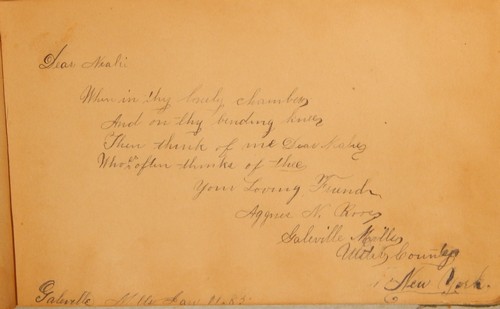 Dear Neahi
When in thy lonely chamber
And on thy bending knees
Then think of me Dear
Who so often thinks of thee
Your Loving Friend
N.
Galeville Mills
Ulster County
New York.
Galeville